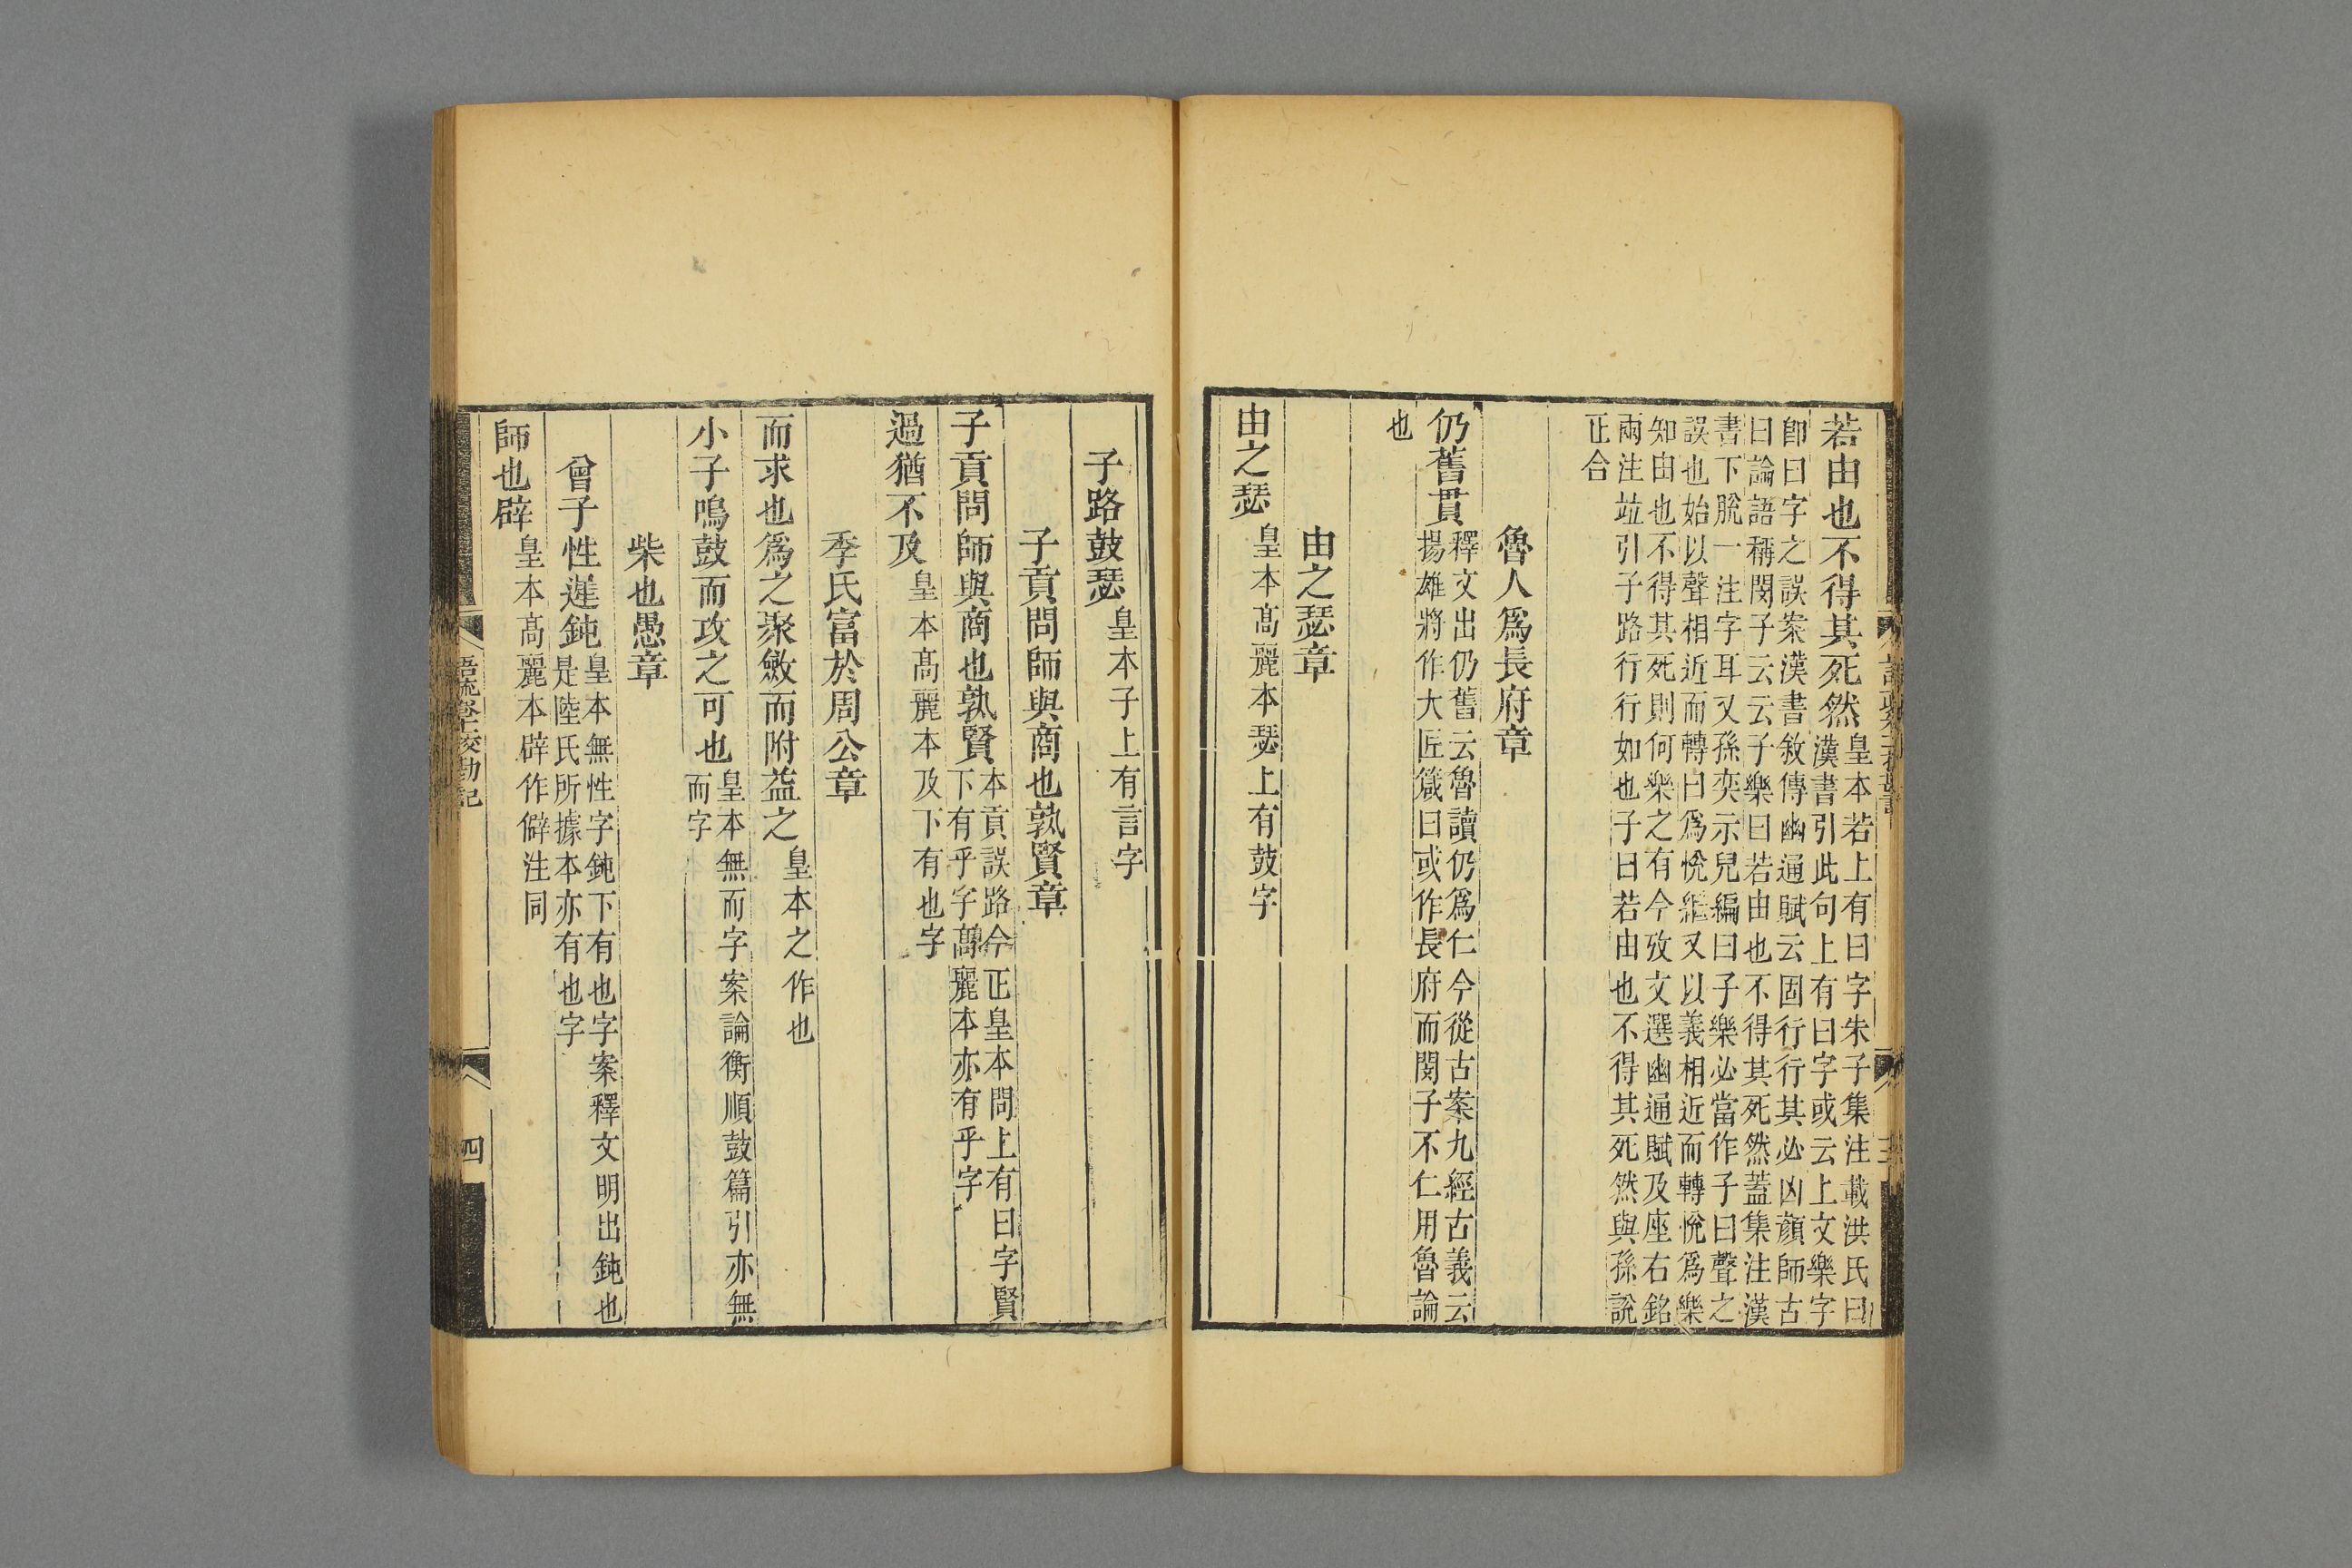 若由也不得其死然皇本若上有曰字朱子集注載洪氏曰
漢書引此句上有曰字或云上文樂字
卽曰字之誤案漢書敘傳幽通賦云固行行其必凶顔師古
曰論語稱閔子云云子樂曰若由也不得其死然蓋集注漢
書下脫一注字耳又孫奕示兒編曰子樂必當作子曰聲之
誤也始以聲相近而轉曰爲悅繼又以義相近而轉悅爲樂
知由也不得其死則何樂之有今攷文選幽通賦及座右銘
兩注竝引子路行行如也子曰若由也不得其死然與孫說
正合
魯人爲長府章
仍舊貫釋文出仍舊云魯讀仍爲仁今從古案九經古義云
揚雄將作大匠箴曰或作長府而閔子不仁用魯論
也
由之瑟章
由之瑟皇本高麗本瑟上有鼓字
子路鼓瑟皇本子上有言字
子貢問師與商也孰賢章
子貢問師與商也孰賢本貢誤路今正皇本問上有曰字賢
下有乎字高麗本亦有乎字
過猶不及皇本高麗本及下有也字
季氏富於周公章
而求也爲之聚斂而附益之皇本之作也
小子鳴鼓而攻之可也皇本無而字案論衡順鼓篇引亦無
而字
柴也愚章
曾子性遲鈍皇本無性字鈍下有也字案釋文明出鈍也
是陸氏所據本亦有也字
師也辟皇本高麗本辟作僻注同
語疏卷十一校勘記
四